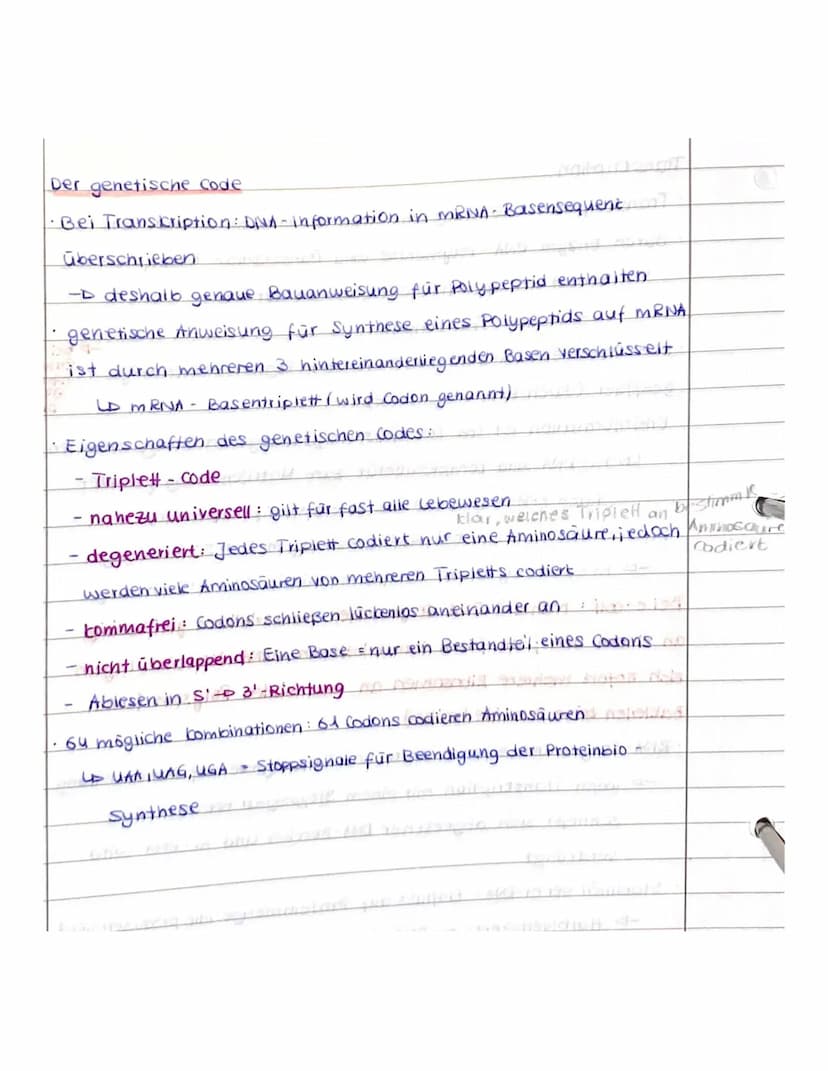 Der genetische Code
· Bei Transkription: DNA-Information in mRNA-Basensequent
überschrieben
→ deshalb genaue Bauanweisung für Polypeptid enthalten
· genetische Anweisung für Synthese eines Polypeptids auf mRNA
ist durch mehreren 3 hintereinanderliegenden Basen verschlüsselt
↳ mRNA - Basentriplett (wird Codon genannt)
· Eigenschaften des genetischen Codes:
- Triplett - Code
- nahezu universell: gilt für fast alle Lebewesen
klar, welches Triplett an bestimmte
Aminosäure
codiert
- degeneriert: Jedes Triplett codiert nur eine Aminosäure, jedoch
werden viele Aminosäuren von mehreren Tripletts codiert
- kommafrei: Codons schließen lückenlos aneinander an
- nicht überlappend: Eine Base = nur ein Bestandteil eines Codons
- Ablesen in 5'→ 3'-Richtung
· 64 mögliche Kombinationen: 61 Codons codieren Aminosäuren
↳ UAA, UAG, UGA = Stoppsignale für Beendigung der Proteinbio-
Synthese